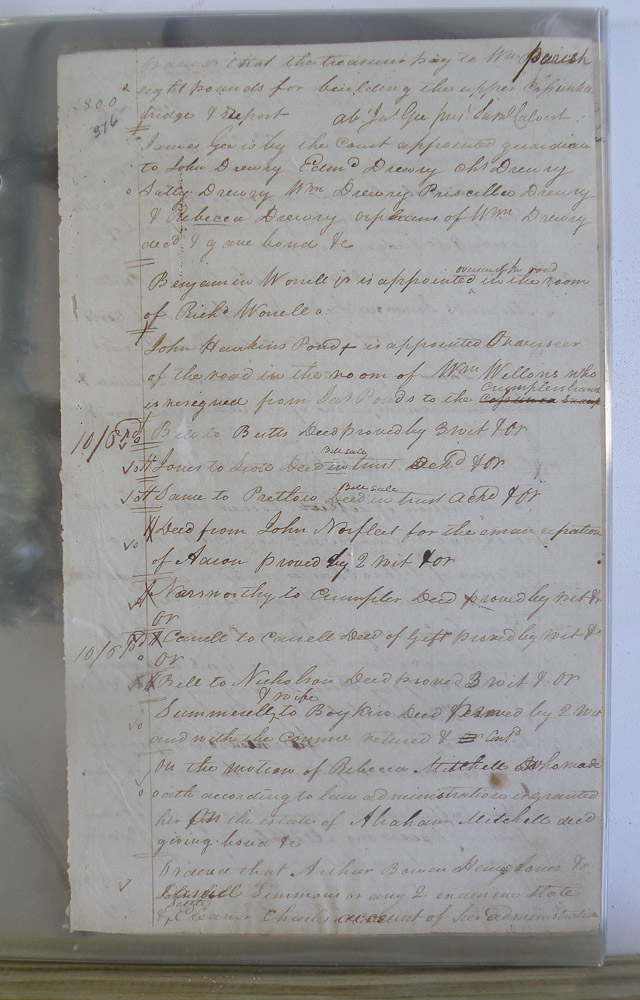 that the treasurer pay to Wm parish
8.0.0 eight pounds for building the upper
376 bridge & report
James Gee is by the Court appointed guardian
to John Drewry Edmd Drewry Chs Drewry
Sally Drewry Wm Drewry Priscilla Drewry
& Rebecca Drewry orphans of Wm Drewry
decd & gave bond &c
Benjamin Worrell jr is appointed overseer of the road in the room
of Richd Worrell
John Hawkins Pond is appointed Overseer
of the road in the room of Wm Wellons who
is resigned from Ponds to the Crumplers
10/6 pd Bell to Butts Deed proved by 3 wit & Or
Jones to Scott Deed in trust Bill Sale ackd & Or
Same to Pretlow Deed in trust Bill Sale ackd & Or
Deed from John Norfleet for the emancipation
of Aaron proved by 2 wit & or
Norsworthy to Crumpler Deed proved by wit &
Or
10/6 pd Carrell to Carrell Deed of Gift proved by wit &
Or
Bell to Nicholson Deed proved 3 wit & Or
Summerell & wife to Boykin Deed proved by 2 wit
and with the Commn retured &
On the motion of Rebecca Mitchell who made
oath according to law administration is granted
her on the estate of Abraham Mitchell decd
giving bond &c
Ordered that Arthur Bowen Henry Jones &
Daniel Simmons or any 2 examine state
& settle Eleanor Charles account of her administration